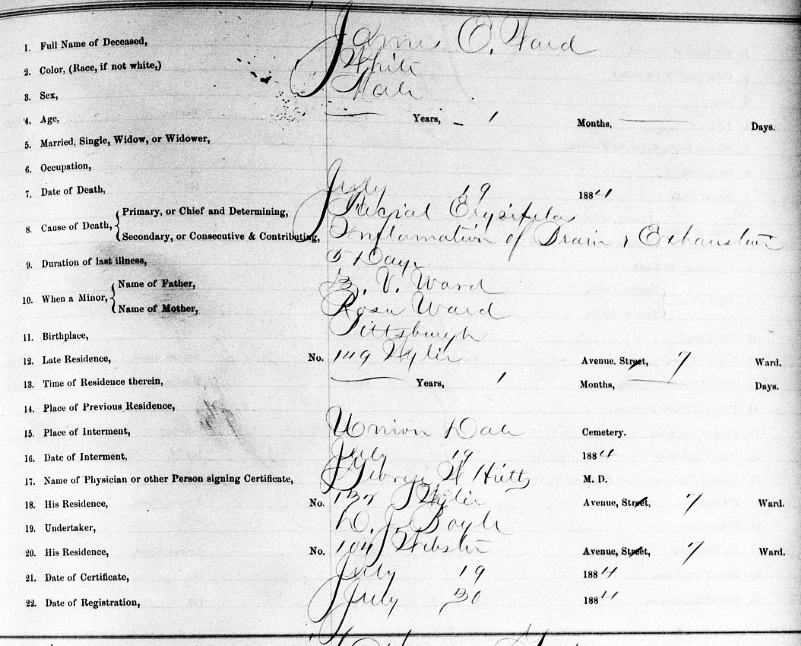 1. Full Name of Deceased, James O. Ward
2. Color, (Race, if not white,) White
3. Sex, Male
4. Age, — Years, 1 Months, — Days.
5. Married, Single, Widow, or Widower,
6. Occupation,
7. Date of Death, July 19 1884
8. Cause of Death, { Primary, or Chief and Determining, Facial Erysipelas
Secondary, or Consecutive & Contributing, Inflamation of Brain & Exhaustion
9. Duration of last illness, 5 Days
10. When a Minor, { Name of Father, B. V. Ward
Name of Mother, Rosa Ward
11. Birthplace, Pittsburgh
12. Late Residence, No. 149 Wylie Avenue, Street, 7 Ward.
13. Time of Residence therein, — Years, 1 Months, — Days.
14. Place of Previous Residence,
15. Place of Interment, Union Dale Cemetery.
16. Date of Interment, July 19 1884
17. Name of Physician or other Person signing Certificate, George W Hitts M. D.
18. His Residence, No. 137 Wylie Avenue, Street, 7 Ward.
19. Undertaker, D. J. Boyle
20. His Residence, No. 104 Webster Avenue, Street, 7 Ward.
21. Date of Certificate, July 19 1884
22. Date of Registration, July 30 1884